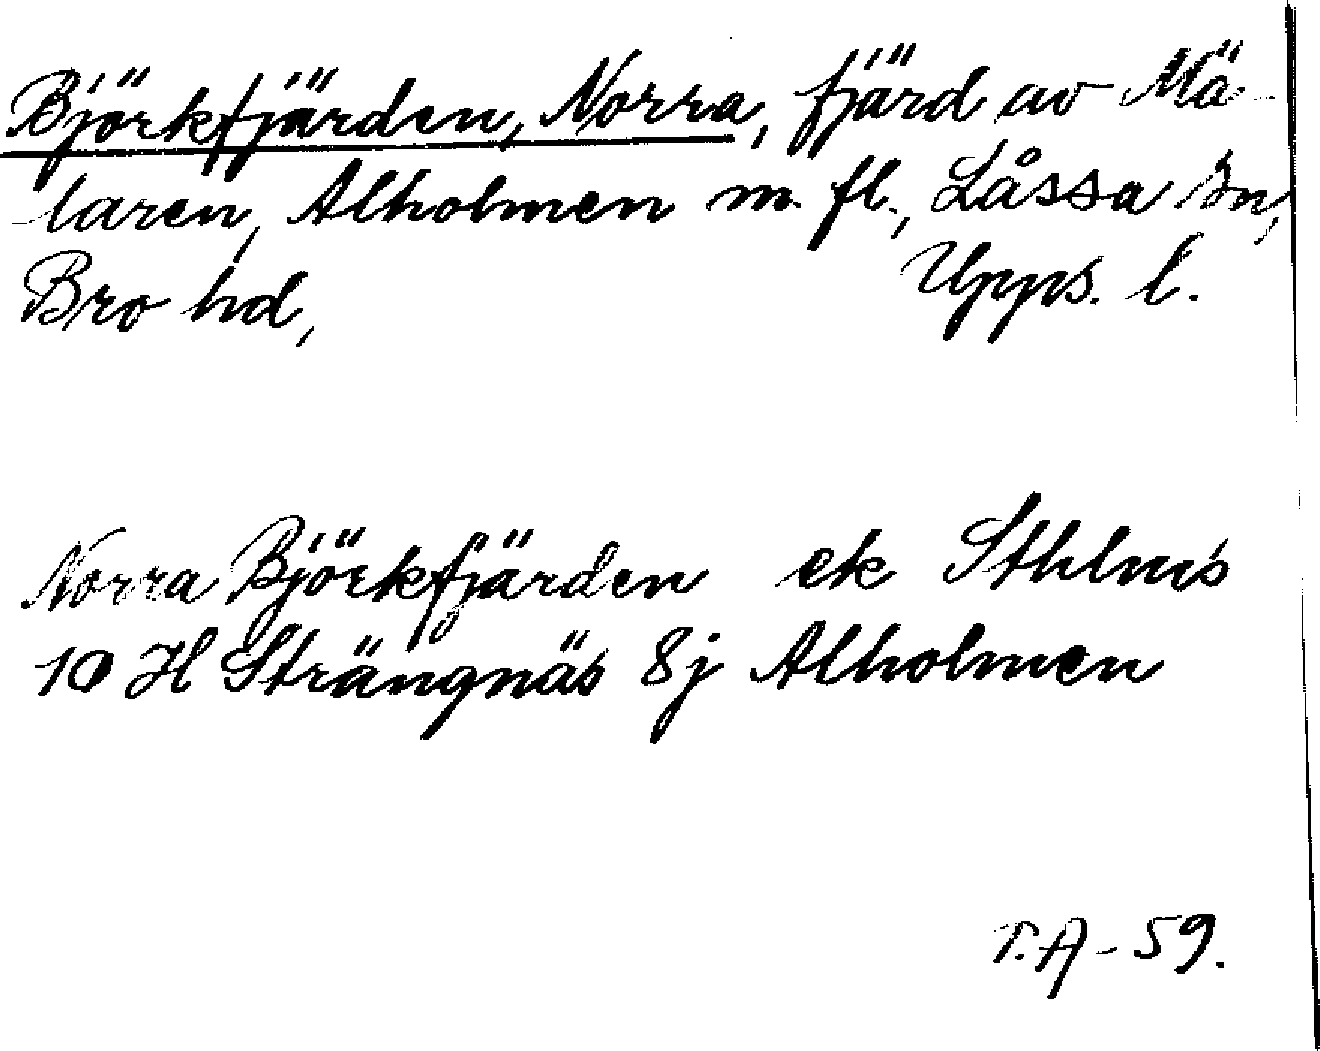 Björkfjärden, Norra, fjärd av Mä-
laren, Alholmen m. fl., Låssa sn,
Bro hd, Upps. l.
Norra Björkfjärden ek Sthlms
10 H Strängnäs 8j Alholmen
T.A - 59.